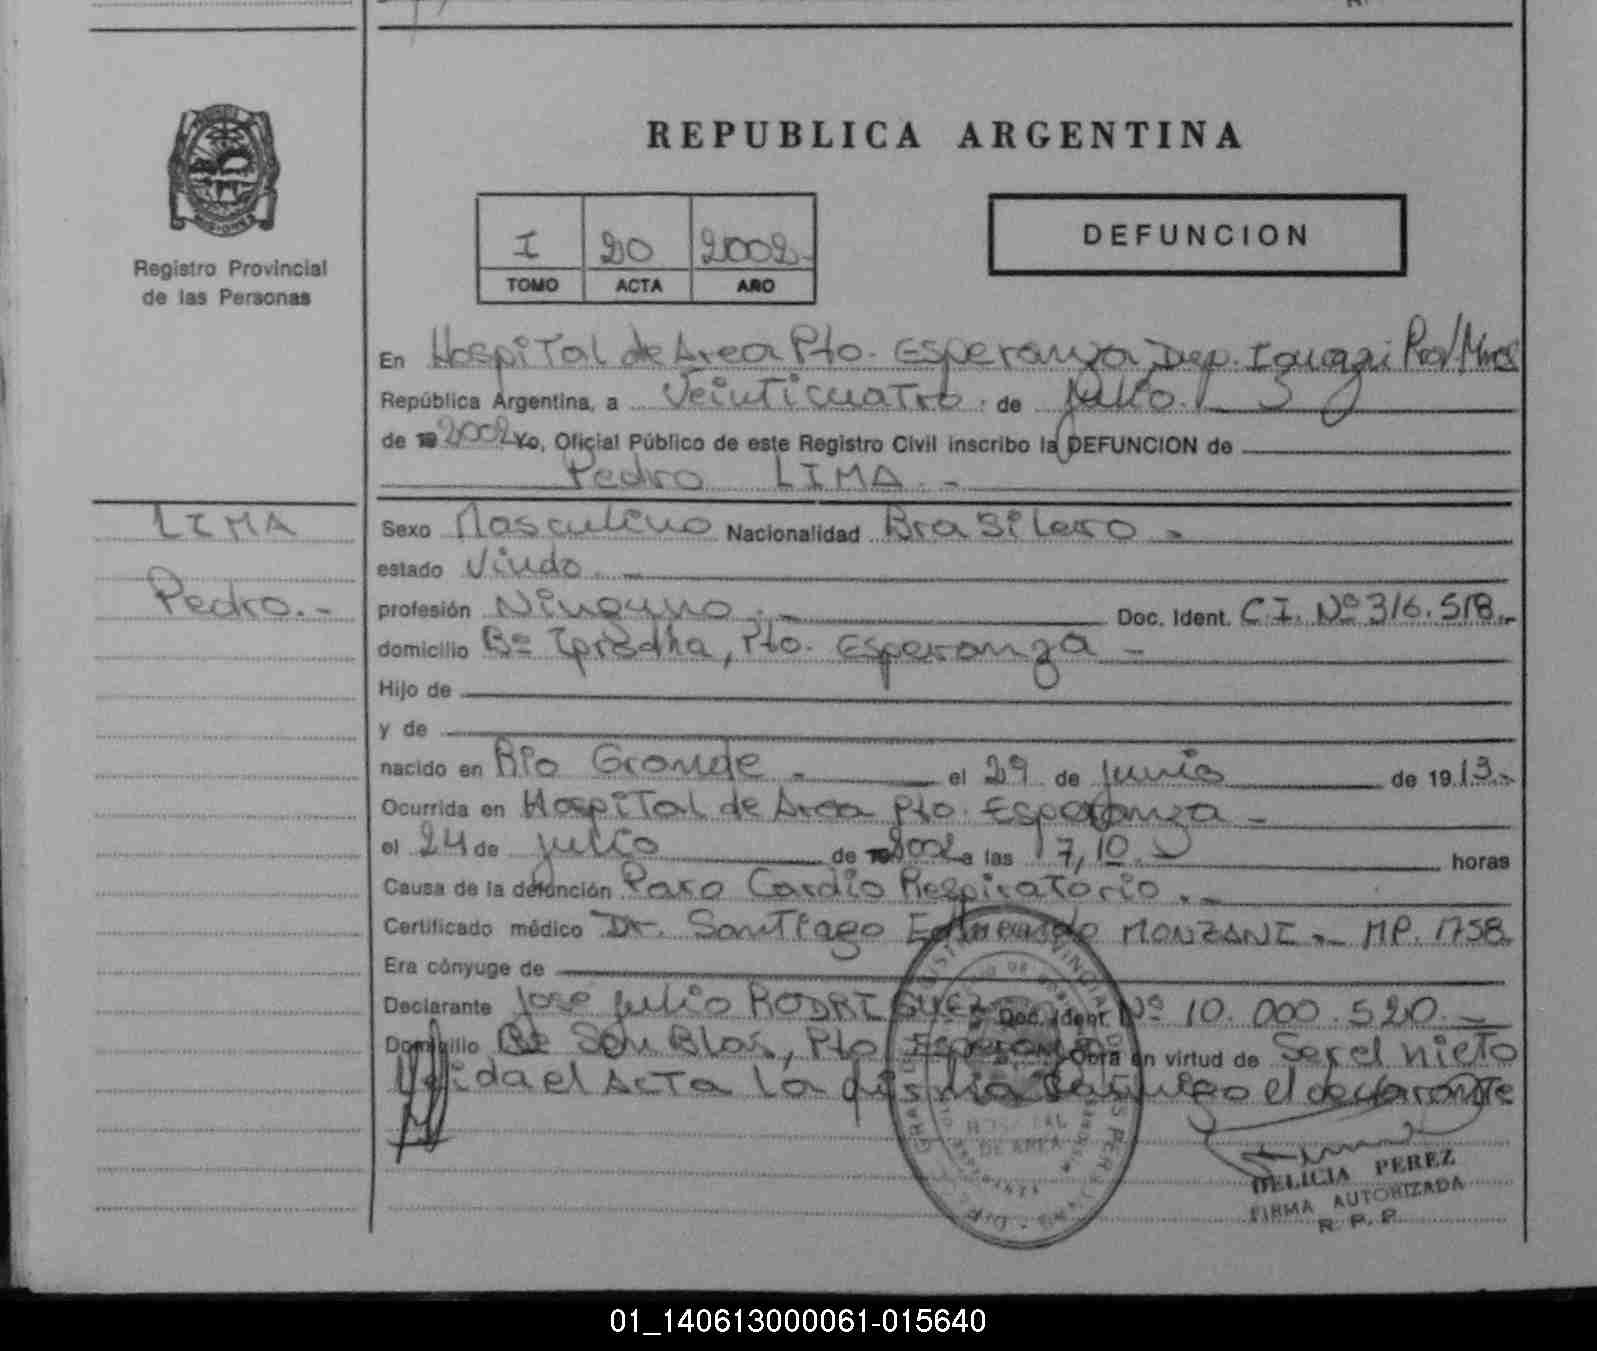 REPUBLICA ARGENTINA
I 20 2002.-
TOMO ACTA AÑO
DEFUNCION
Registro Provincial
de las Personas
En Hospital de Area Pto. Esperanza Dep. Iguazú
República Argentina, a Veinticuatro. de julio.
de 19 2002 Yo, Oficial Público de este Registro Civil inscribo la DEFUNCION de
Pedro LIMA.-
LIMA
Pedro.-
Sexo Masculino Nacionalidad Brasilero -
estado Viudo.-
profesión Ninguno.- Doc. Ident. C.I. Nº 316.518.-
domicilio Bº , Pto. Esperanza -
Hijo de
y de
nacido en Río Grande - el 29 de junio de 1913.-
Ocurrida en Hospital de Area Pto. Esperanza -
el 24 de julio de 19 2002 a las 17,10 horas
Causa de la defunción Paro Cardio Respiratorio.-
Certificado médico Dr. Santiago Edmundo MONZANI - MP. 1758
Era cónyuge de
Declarante Jose Julio RODRIGUEZ Doc. Ident. Nº 10.000.520.-
Domicilio Bº San Blas, Pto. Esperanza Obra en virtud de Ser el nieto
Leida el Acta la firma el declarante
HOSPITAL
DE AREA
DELICIA PEREZ
FIRMA AUTORIZADA
R. P. P.
01_140613000061-015640